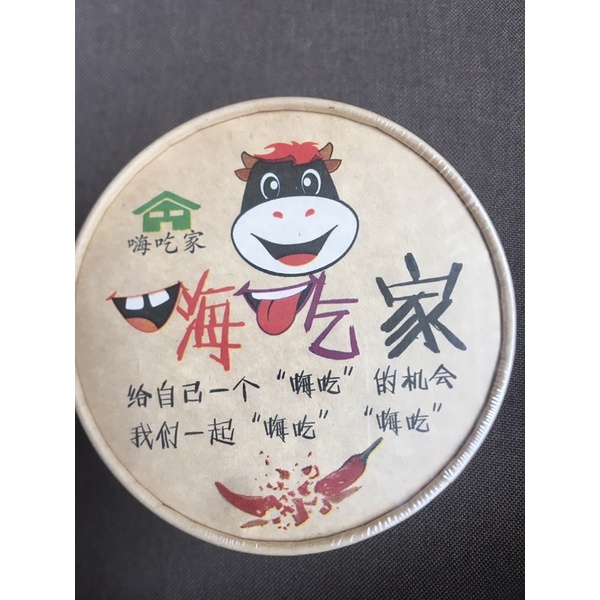 嗨吃家
嗨吃家
给自己一个“嗨吃”的机会
我们一起“嗨吃”“嗨吃”